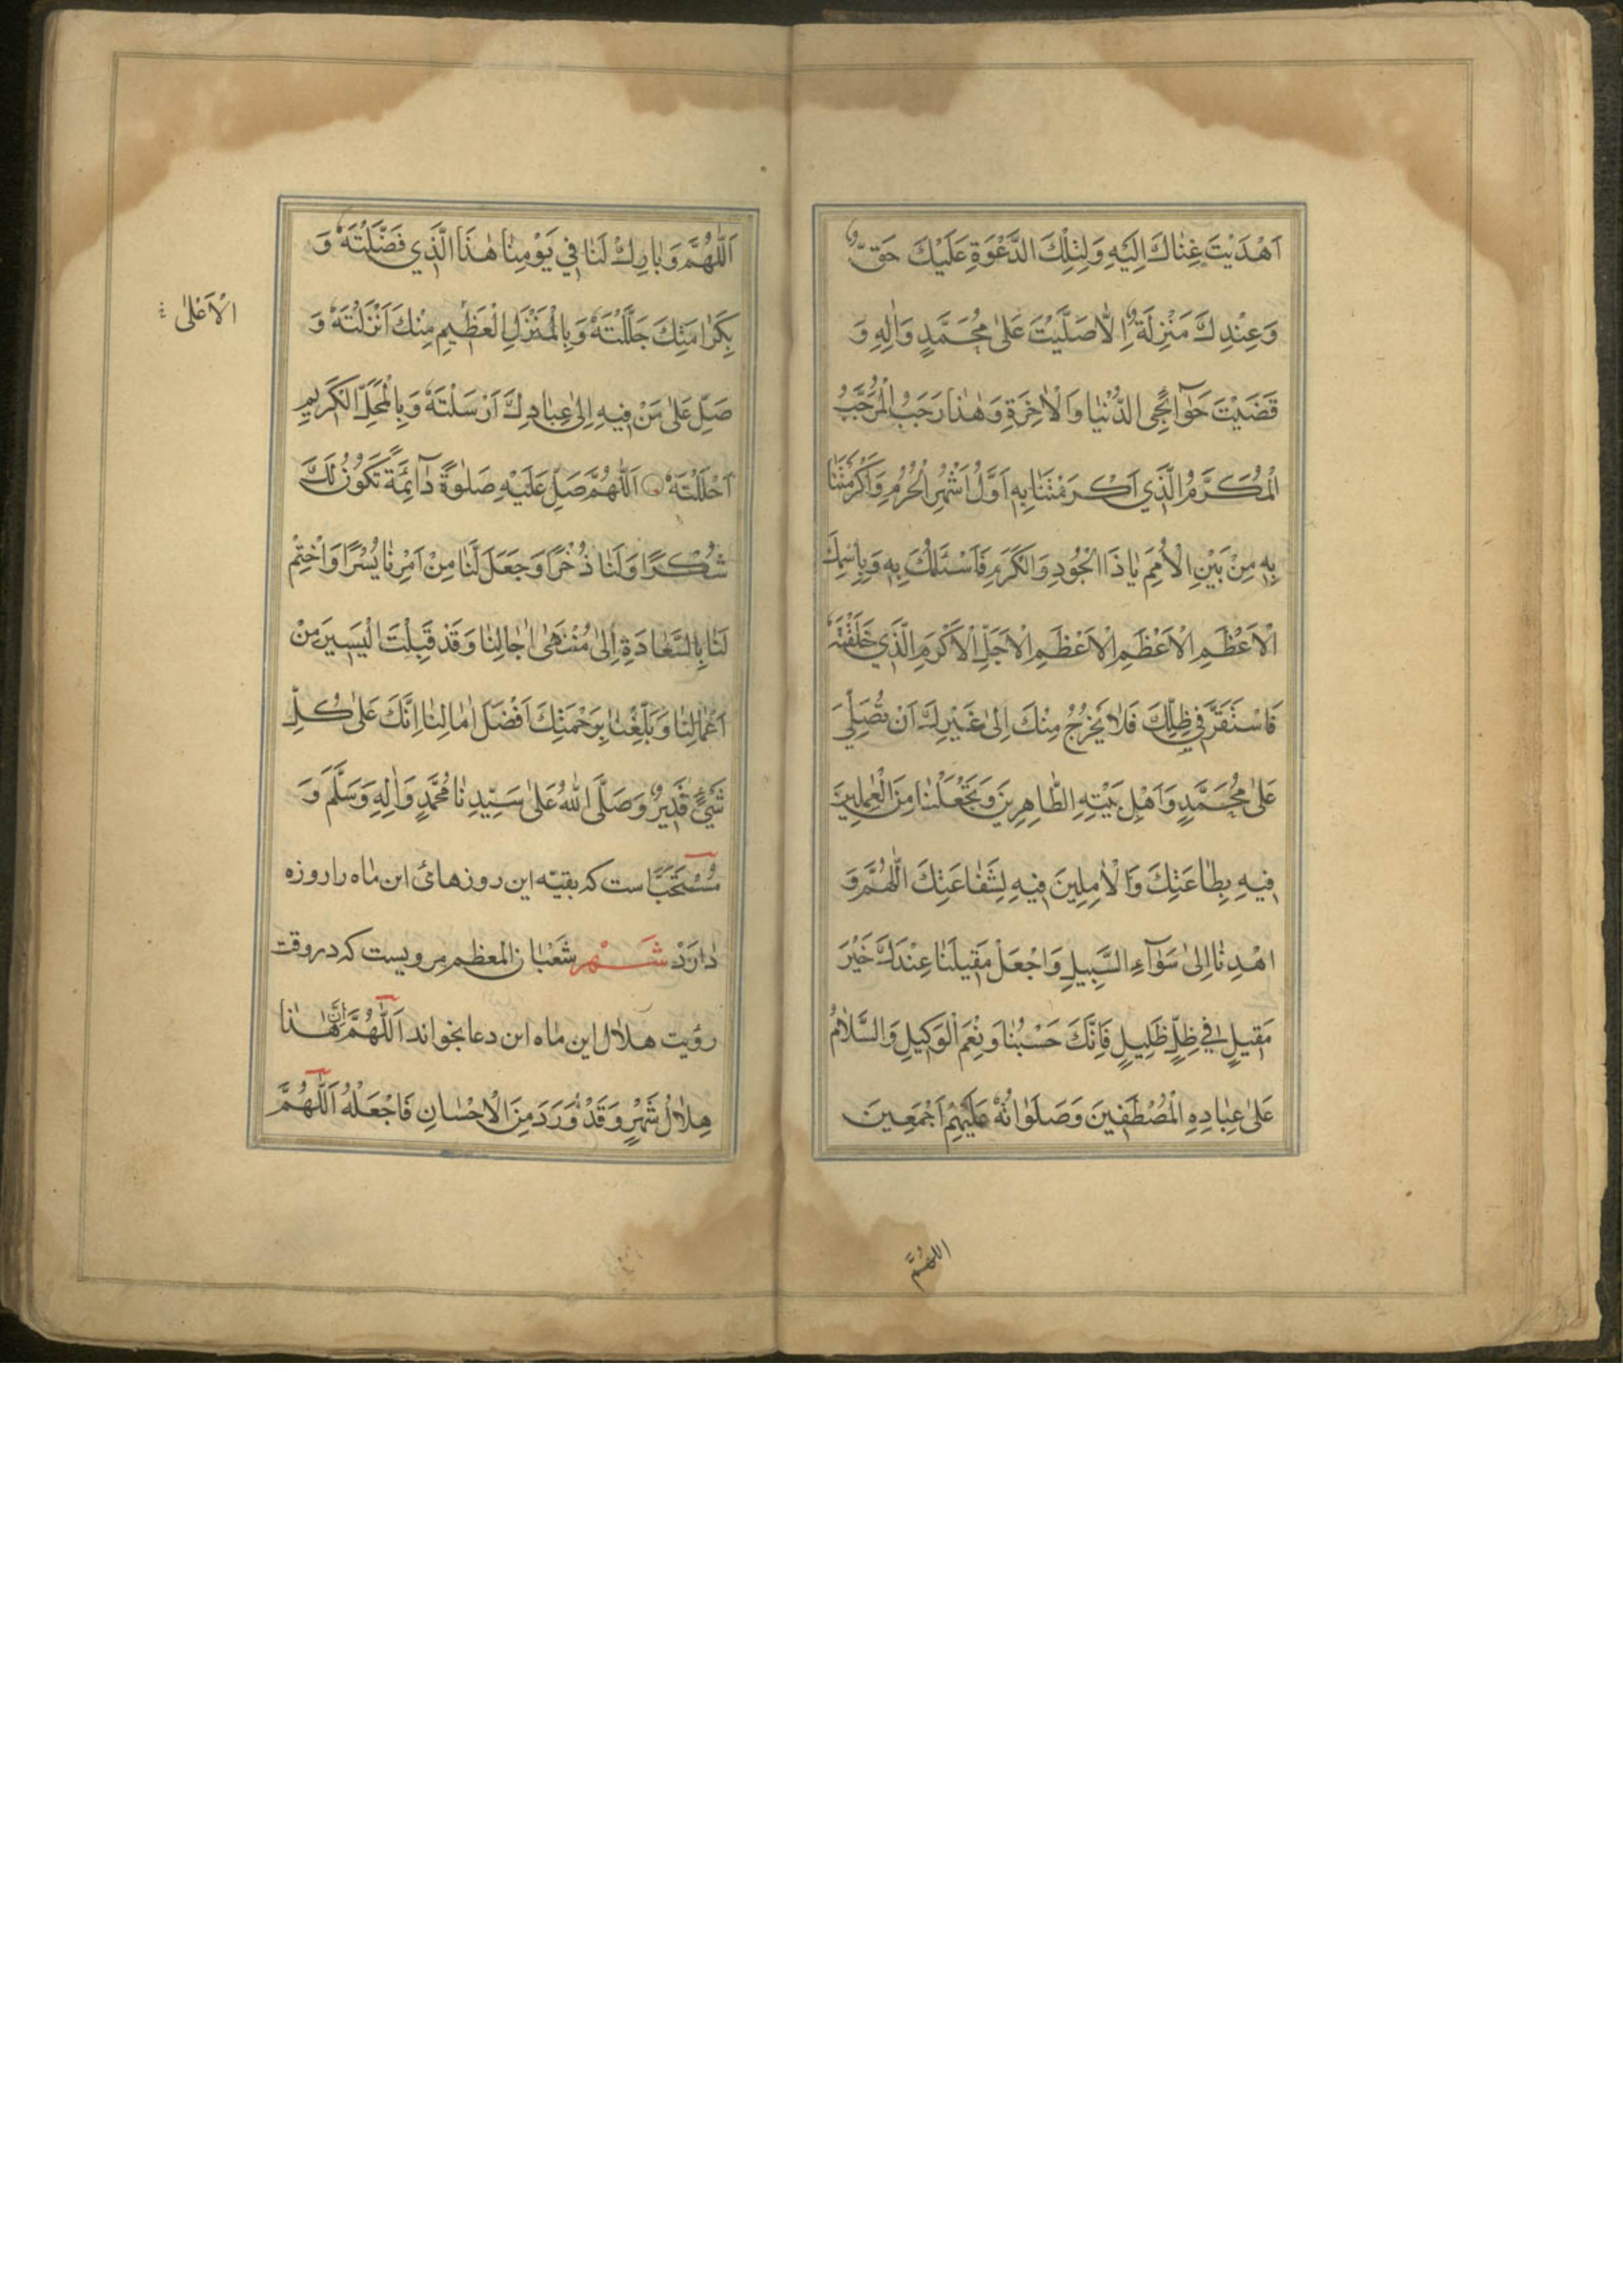 اَهْدَيْتَ غِنٰاكَ اِلَيْهِ وَلِتِلْكَ الدَّعْوَةِ عَلَيْكَ حَقٌّ
وَعِنْدِكَ مَنْزِلَةٌ اِلّٰا صَلَّيْتَ عَلىٰ مُحَمَّدٍ وَاٰلِهِ وَ
قَضَيْتَ حَوٰآئِجِى الدُّنْيٰا وَالْاٰخِرَةِ وَهٰذٰا رَجَبُ الْمُرَجَّبُ
الْمُكَرَّمُ الَّذِي اَكْرَمْتَنٰا بِهِ اَوَّلُ اَشْهُرِ الْحُرُمِ وَاَكْرَمْتَنٰا
بِهِ مِنْ بَيْنِ الْاُمَمِ يٰا ذَا الْجُودِ وَالْكَرَمِ فَاَسْئَلُكَ بِهِ وَبِاسْمِكَ
الْاَعْظَمِ الْاَعْظَمِ الْاَعْظَمِ الْاَجَلِّ الْاَكْرَمِ الَّذِي خَلَقْتَهُ
فَاسْتَقَرَّ فِي ظِلِّكَ فَلٰا يَخْرُجُ مِنْكَ اِلىٰ غَيْرِكَ اَنْ تُصَلِّيَ
عَلىٰ مُحَمَّدٍ وَاَهْلِ بَيْتِهِ الطّٰاهِرِينَ وَتَجْعَلَنٰا مِنَ الْعٰامِلِينَ
فِيهِ بِطٰاعَتِكَ وَالْاٰمِلِينَ فِيهِ لِشَفٰاعَتِكَ اَللّٰهُمَّ وَ
اهْدِنٰا اِلىٰ سَوٰآءِ السَّبِيلِ وَاجْعَلْ مَقِيلَنٰا عِنْدَكَ خَيْرَ
مَقِيلٍ فِي ظِلٍّ ظَلِيلٍ فَاِنَّكَ حَسْبُنٰا وَنِعْمَ الْوَكِيلِ وَالسَّلٰامُ
عَلىٰ عِبٰادِهِ الْمُصْطَفِينَ وَصَلَوٰاتُهُ عَلَيْهِمْ اَجْمَعِينَ
اللهُمَّ
اَللّٰهُمَّ وَبٰارِكْ لَنٰا فِي يَوْمِنٰا هٰذَا الَّذِي فَضَّلْتَهُ وَ
بِكَرٰامَتِكَ جَلَّلْتَهُ وَبِالْمَنْزَلِ الْعَظِيمِ مِنْكَ اَنْزَلْتَهُ وَ
الْاَعْلىٰ
صَلِّ عَلىٰ مَنْ فِيهِ اِلىٰ عِبٰادِكَ اَرْسَلْتَهُ وَبِالْمَحَلِّ الْكَرِيمِ
اَحْلَلْتَهُ اَللّٰهُمَّ صَلِّ عَلَيْهِ صَلٰوةً دٰآئِمَةً تَكُونُ لَكَ
شُكْرًا وَلَنٰا ذُخْرًا وَجَعَلَ لَنٰا مِنْ اَمْرِنٰا يُسْرًا وَاخْتِمْ
لَنٰا بِالسَّعٰادَةِ اِلىٰ مُنْتَهىٰ اٰجٰالِنٰا وَقَدْ قَبِلْتَ الْيَسِيرَ مِنْ
اَعْمٰالِنٰا وَبَلِّغْنٰا بِرَحْمَتِكَ اَفْضَلَ اٰمٰالِنٰا اِنَّكَ عَلىٰ كُلِّ
شَيْءٍ قَدِيرٌ وَصَلَّى اللهُ عَلىٰ سَيِّدِنٰا مُحَمَّدٍ وَاٰلِهِ وَسَلَّمَ وَ
مُسْتَحَبّ است که بقیّه این روزهائ این مٰاه را روزه
دٰارَدْ شَهْر شَعْبٰان المعظم مرویست که در وقت
رؤیت هلال این مٰاه این دعا بخواند اَللّٰهُمَّ اِنَّ هٰذٰا
هِلٰالُ شَهْرٍ وَقَدْ وَرَدَ مِنَ الْاِحْسٰانِ فَاجْعَلْهُ اَللّٰهُمَّ